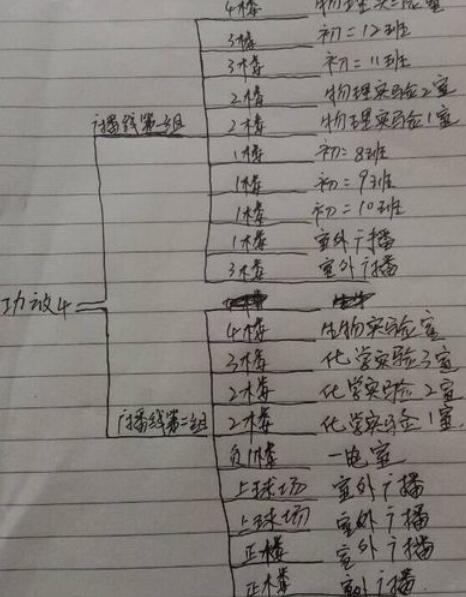 4楼 物理实验三室
3楼 初二12班
3楼 初二11班
2楼 物理实验2室
广播线第一组 2楼 物理实验1室
1楼 初二8班
1楼 初二9班
1楼 初二10班
1楼 室外广播
3楼 室外广播
功放4
4楼 生物实验室
3楼 化学实验3室
2楼 化学实验2室
广播线第二组 2楼 化学实验1室
负1楼 一电室
上球场 室外广播
上球场 室外广播
正楼 室外广播
正楼 室外广播